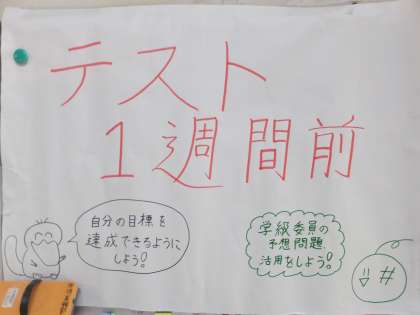 テスト
1週間前
自分の目標を
達成できるように
しよう!
学級委員の
予想問題
活用をしよう!